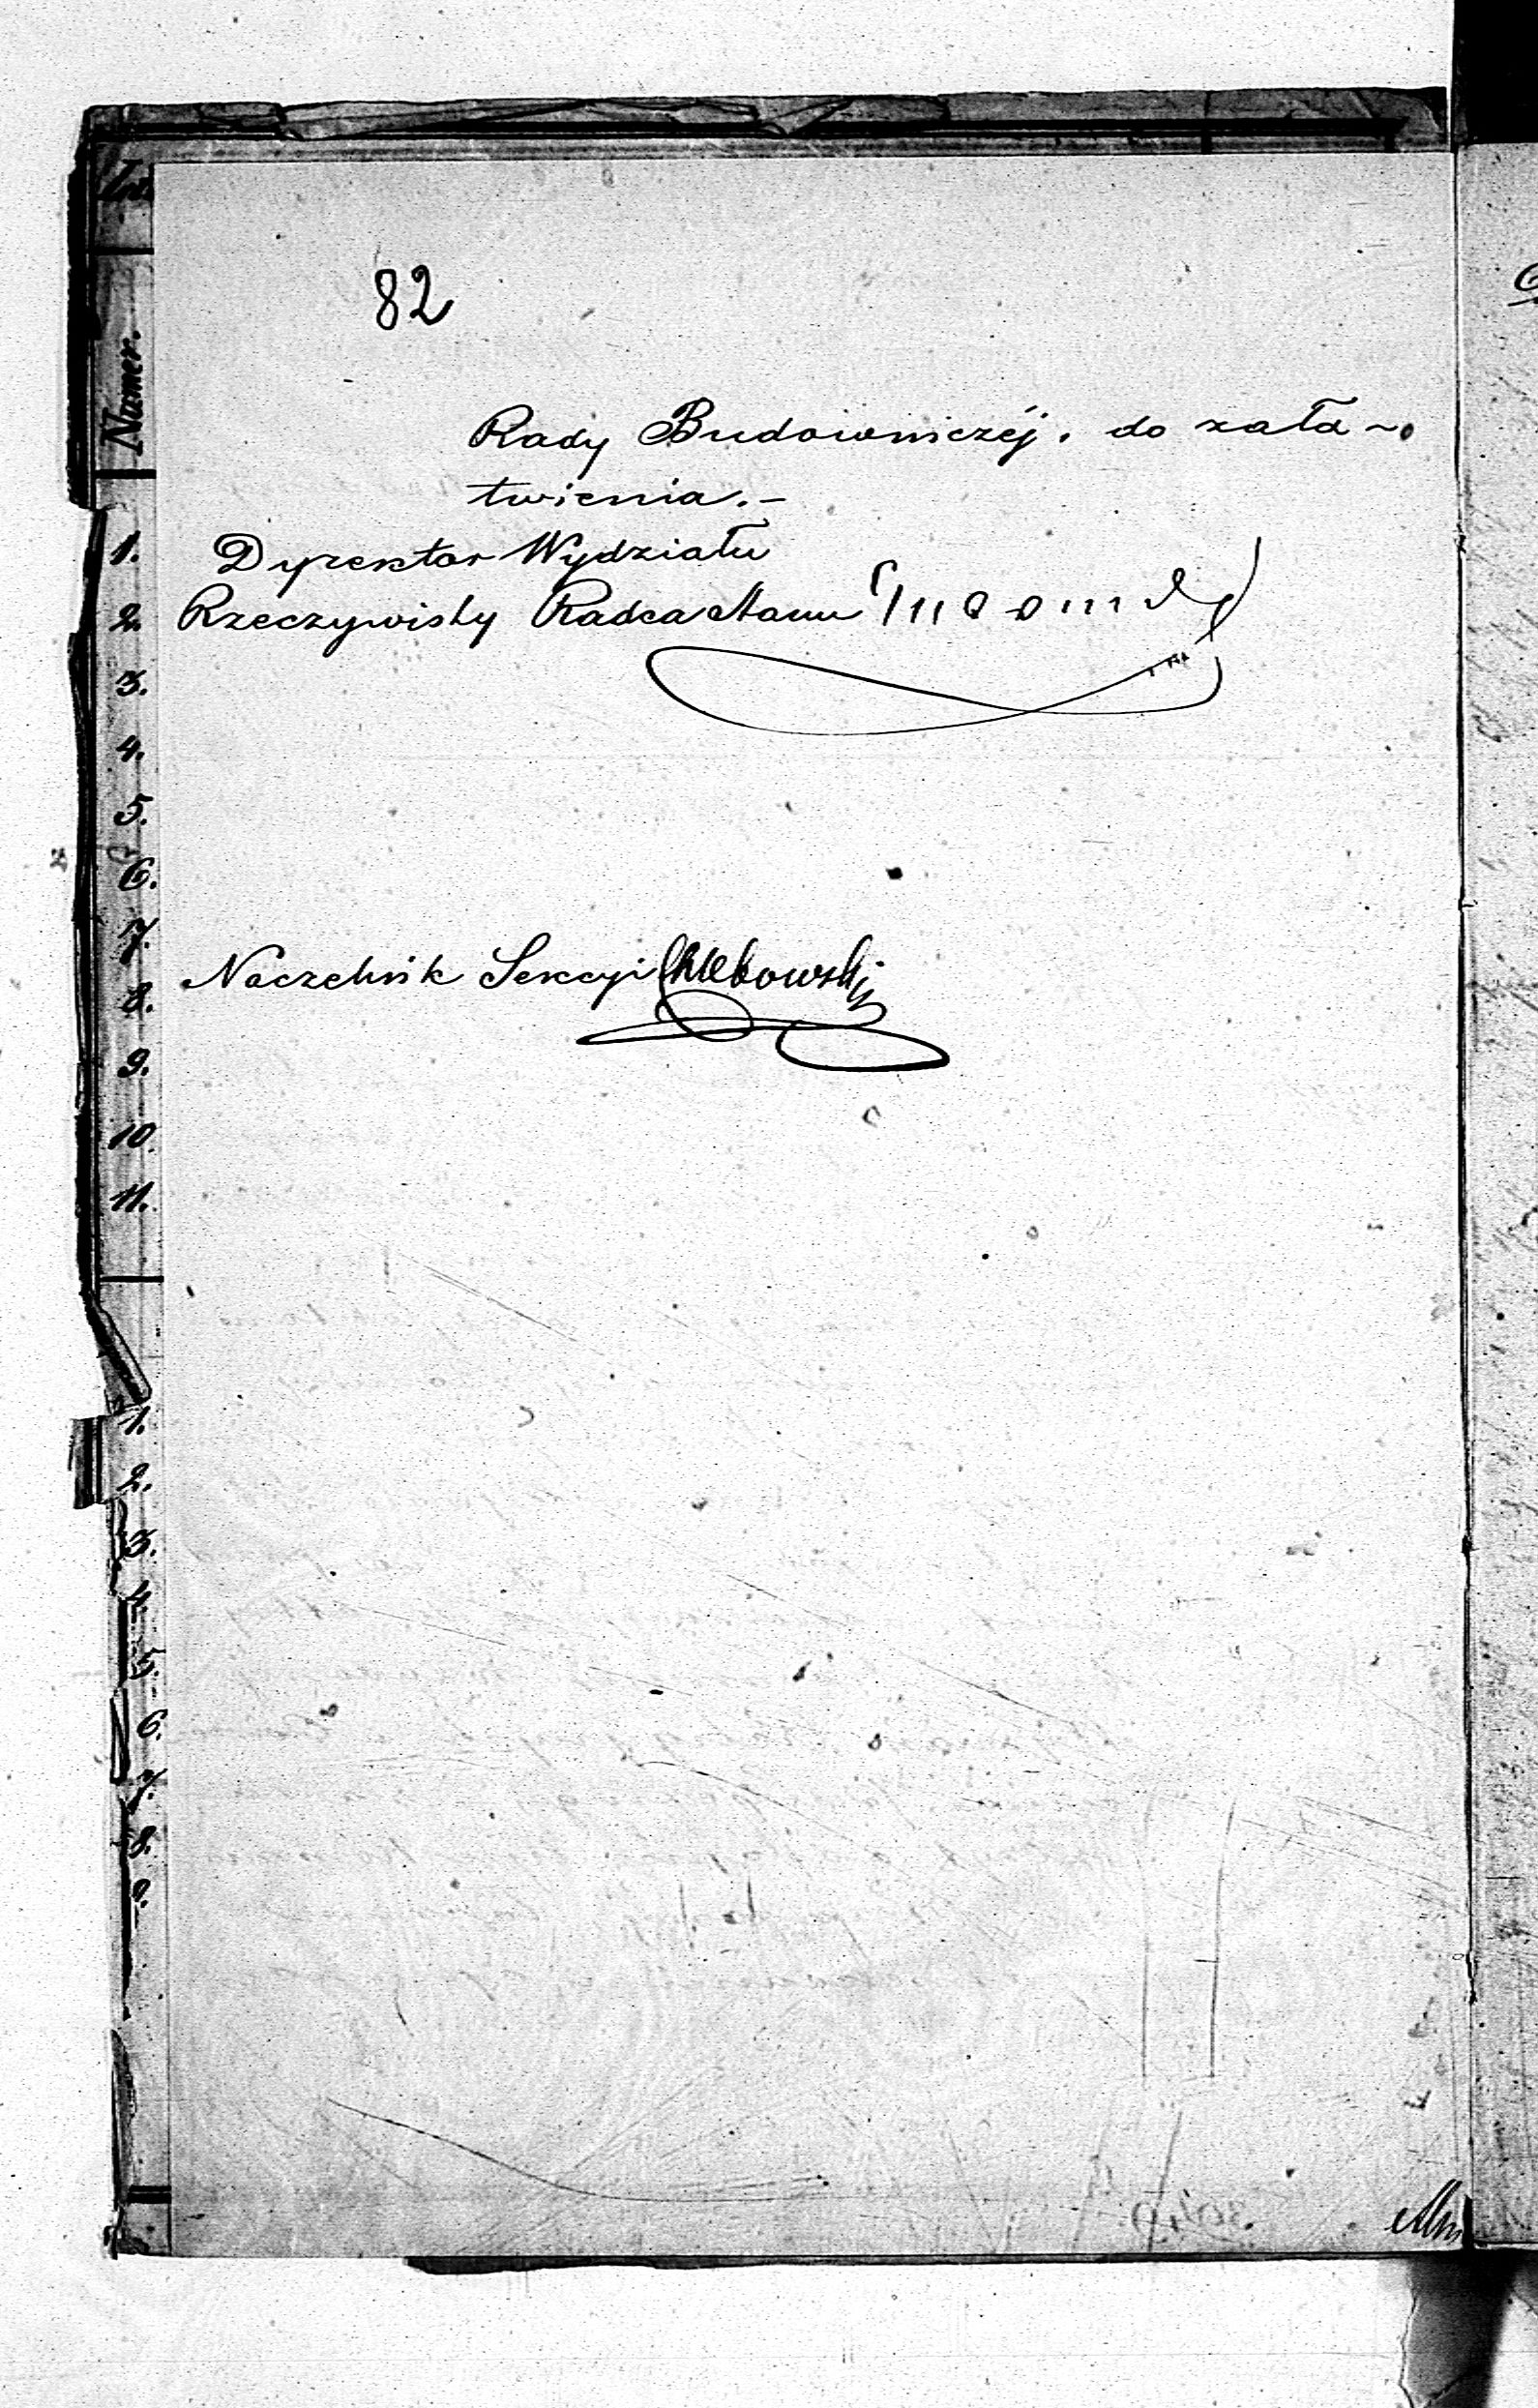 82
Rady Budowniczéj. do zała-
twienia.-
Dyrektor Wydziału
Rzeczywisty Radca Stanu
Naczelnik Sekcyi Chlebowski
Numer.
1.
2.
3.
4.
5.
6.
7.
8.
9.
10.
11.
1.
2.
3.
4.
5.
6.
7.
8.
9.